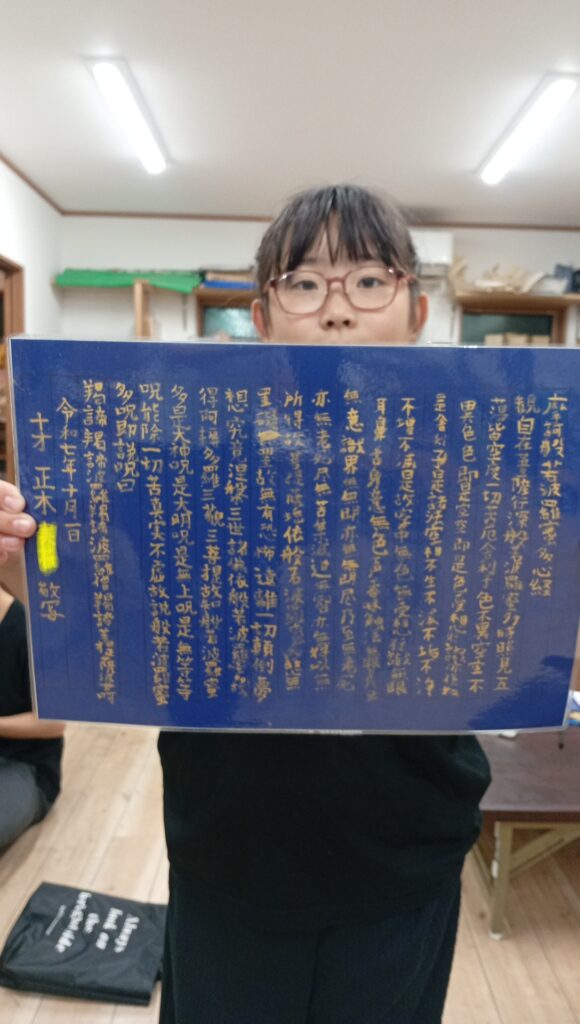 摩訶般若波羅蜜多心経
観自在菩薩行深般若波羅蜜多時照見五
蘊皆空度一切苦厄舎利子色不異空空不
異色色即是空空即是色受想行識亦復如
是舎利子是諸法空相不生不滅不垢不浄
不増不減是故空中無色無受想行識無眼
耳鼻舌身意無色声香味触法無眼界乃至
無意識界無無明亦無無明尽乃至無老死
亦無老死尽無苦集滅道無智亦無得以無
所得故菩提薩埵依般若波羅蜜多故心無
罣礙無罣礙故無有恐怖遠離一切顛倒夢
想究竟涅槃三世諸仏依般若波羅蜜多故
得阿耨多羅三藐三菩提故知般若波羅蜜
多是大神呪是大明呪是無上呪是無等等
呪能除一切苦真実不虚故説般若波羅蜜
多呪即説呪曰
羯諦羯諦波羅羯諦波羅僧羯諦菩提薩婆訶
令和七年十月一日
十才 正木 敬写
Always
look on
the